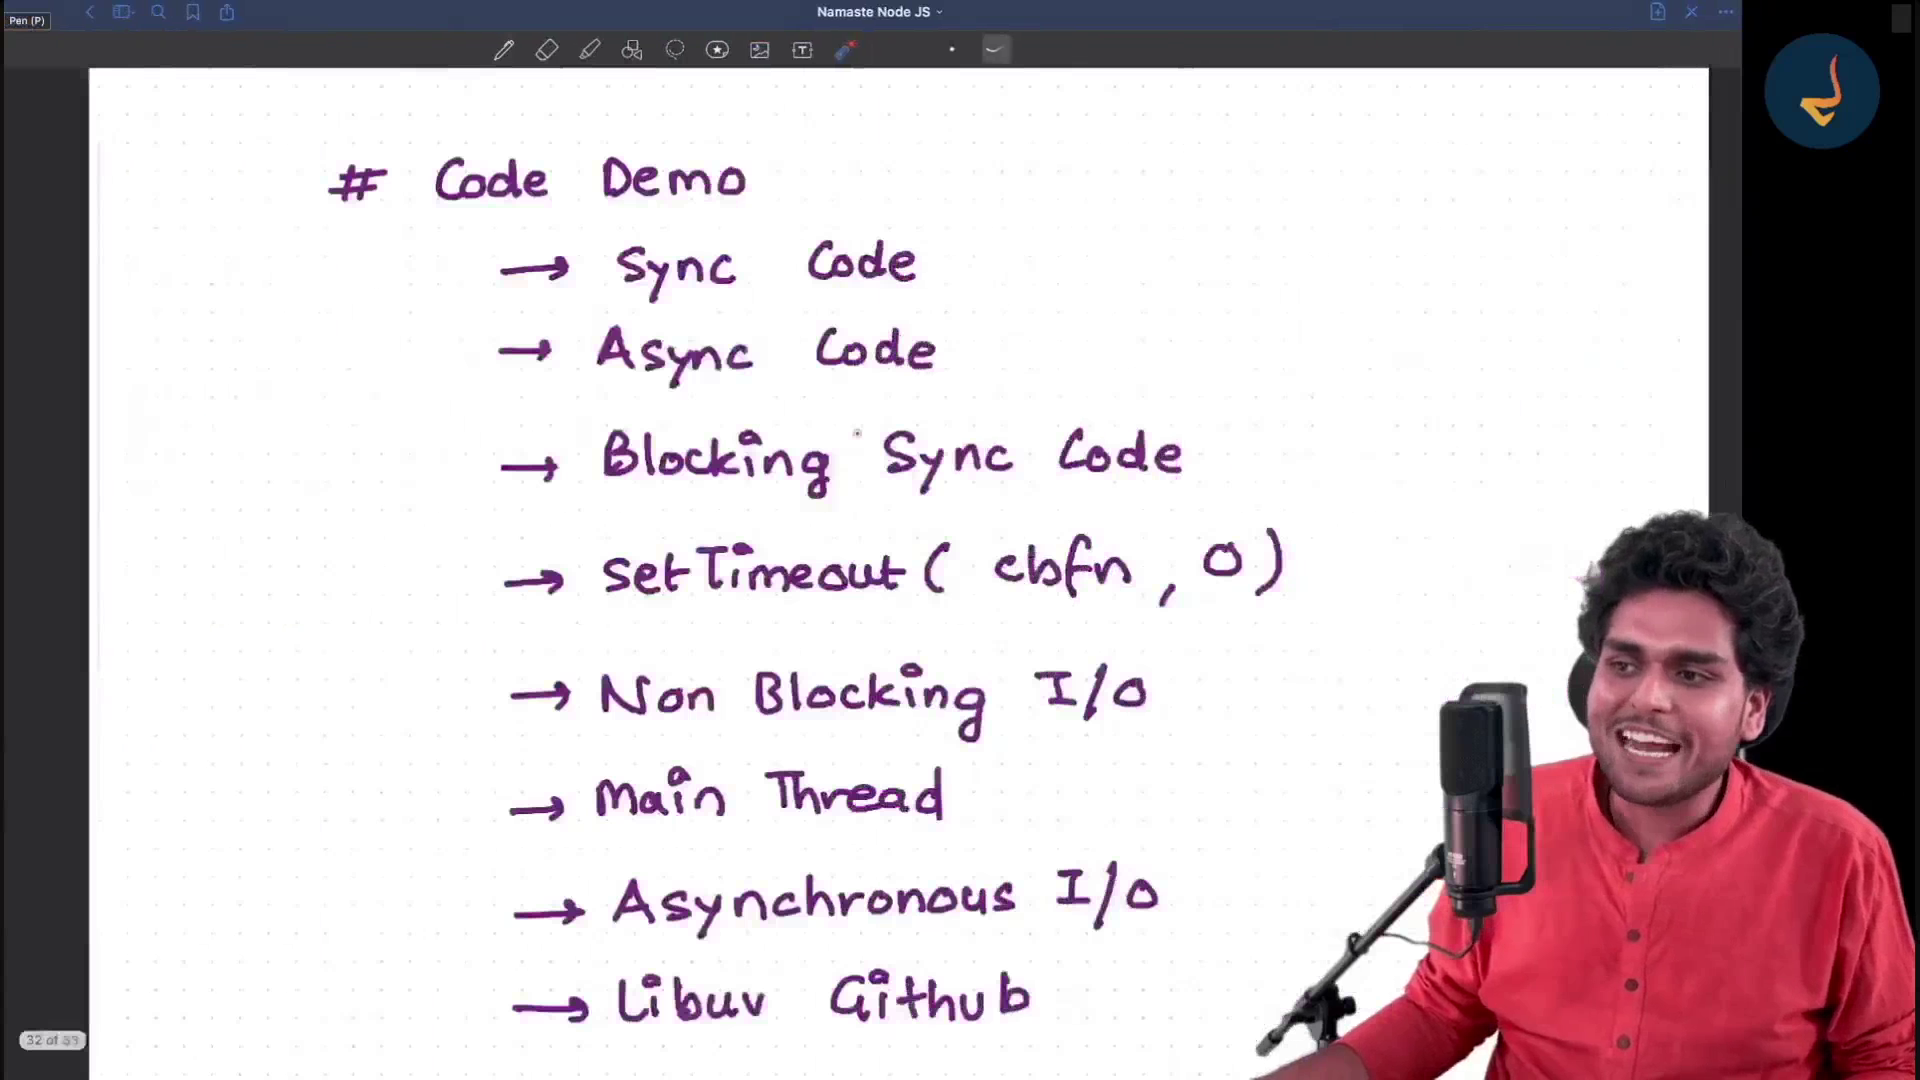 Pen (P)
Namaste Node JS
# Code Demo
→ Sync Code
→ Async Code
→ Blocking Sync Code
→ setTimeout( cbfn , 0 )
→ Non Blocking I/O
→ Main Thread
→ Asynchronous I/O
→ Libuv Github
32 of 53